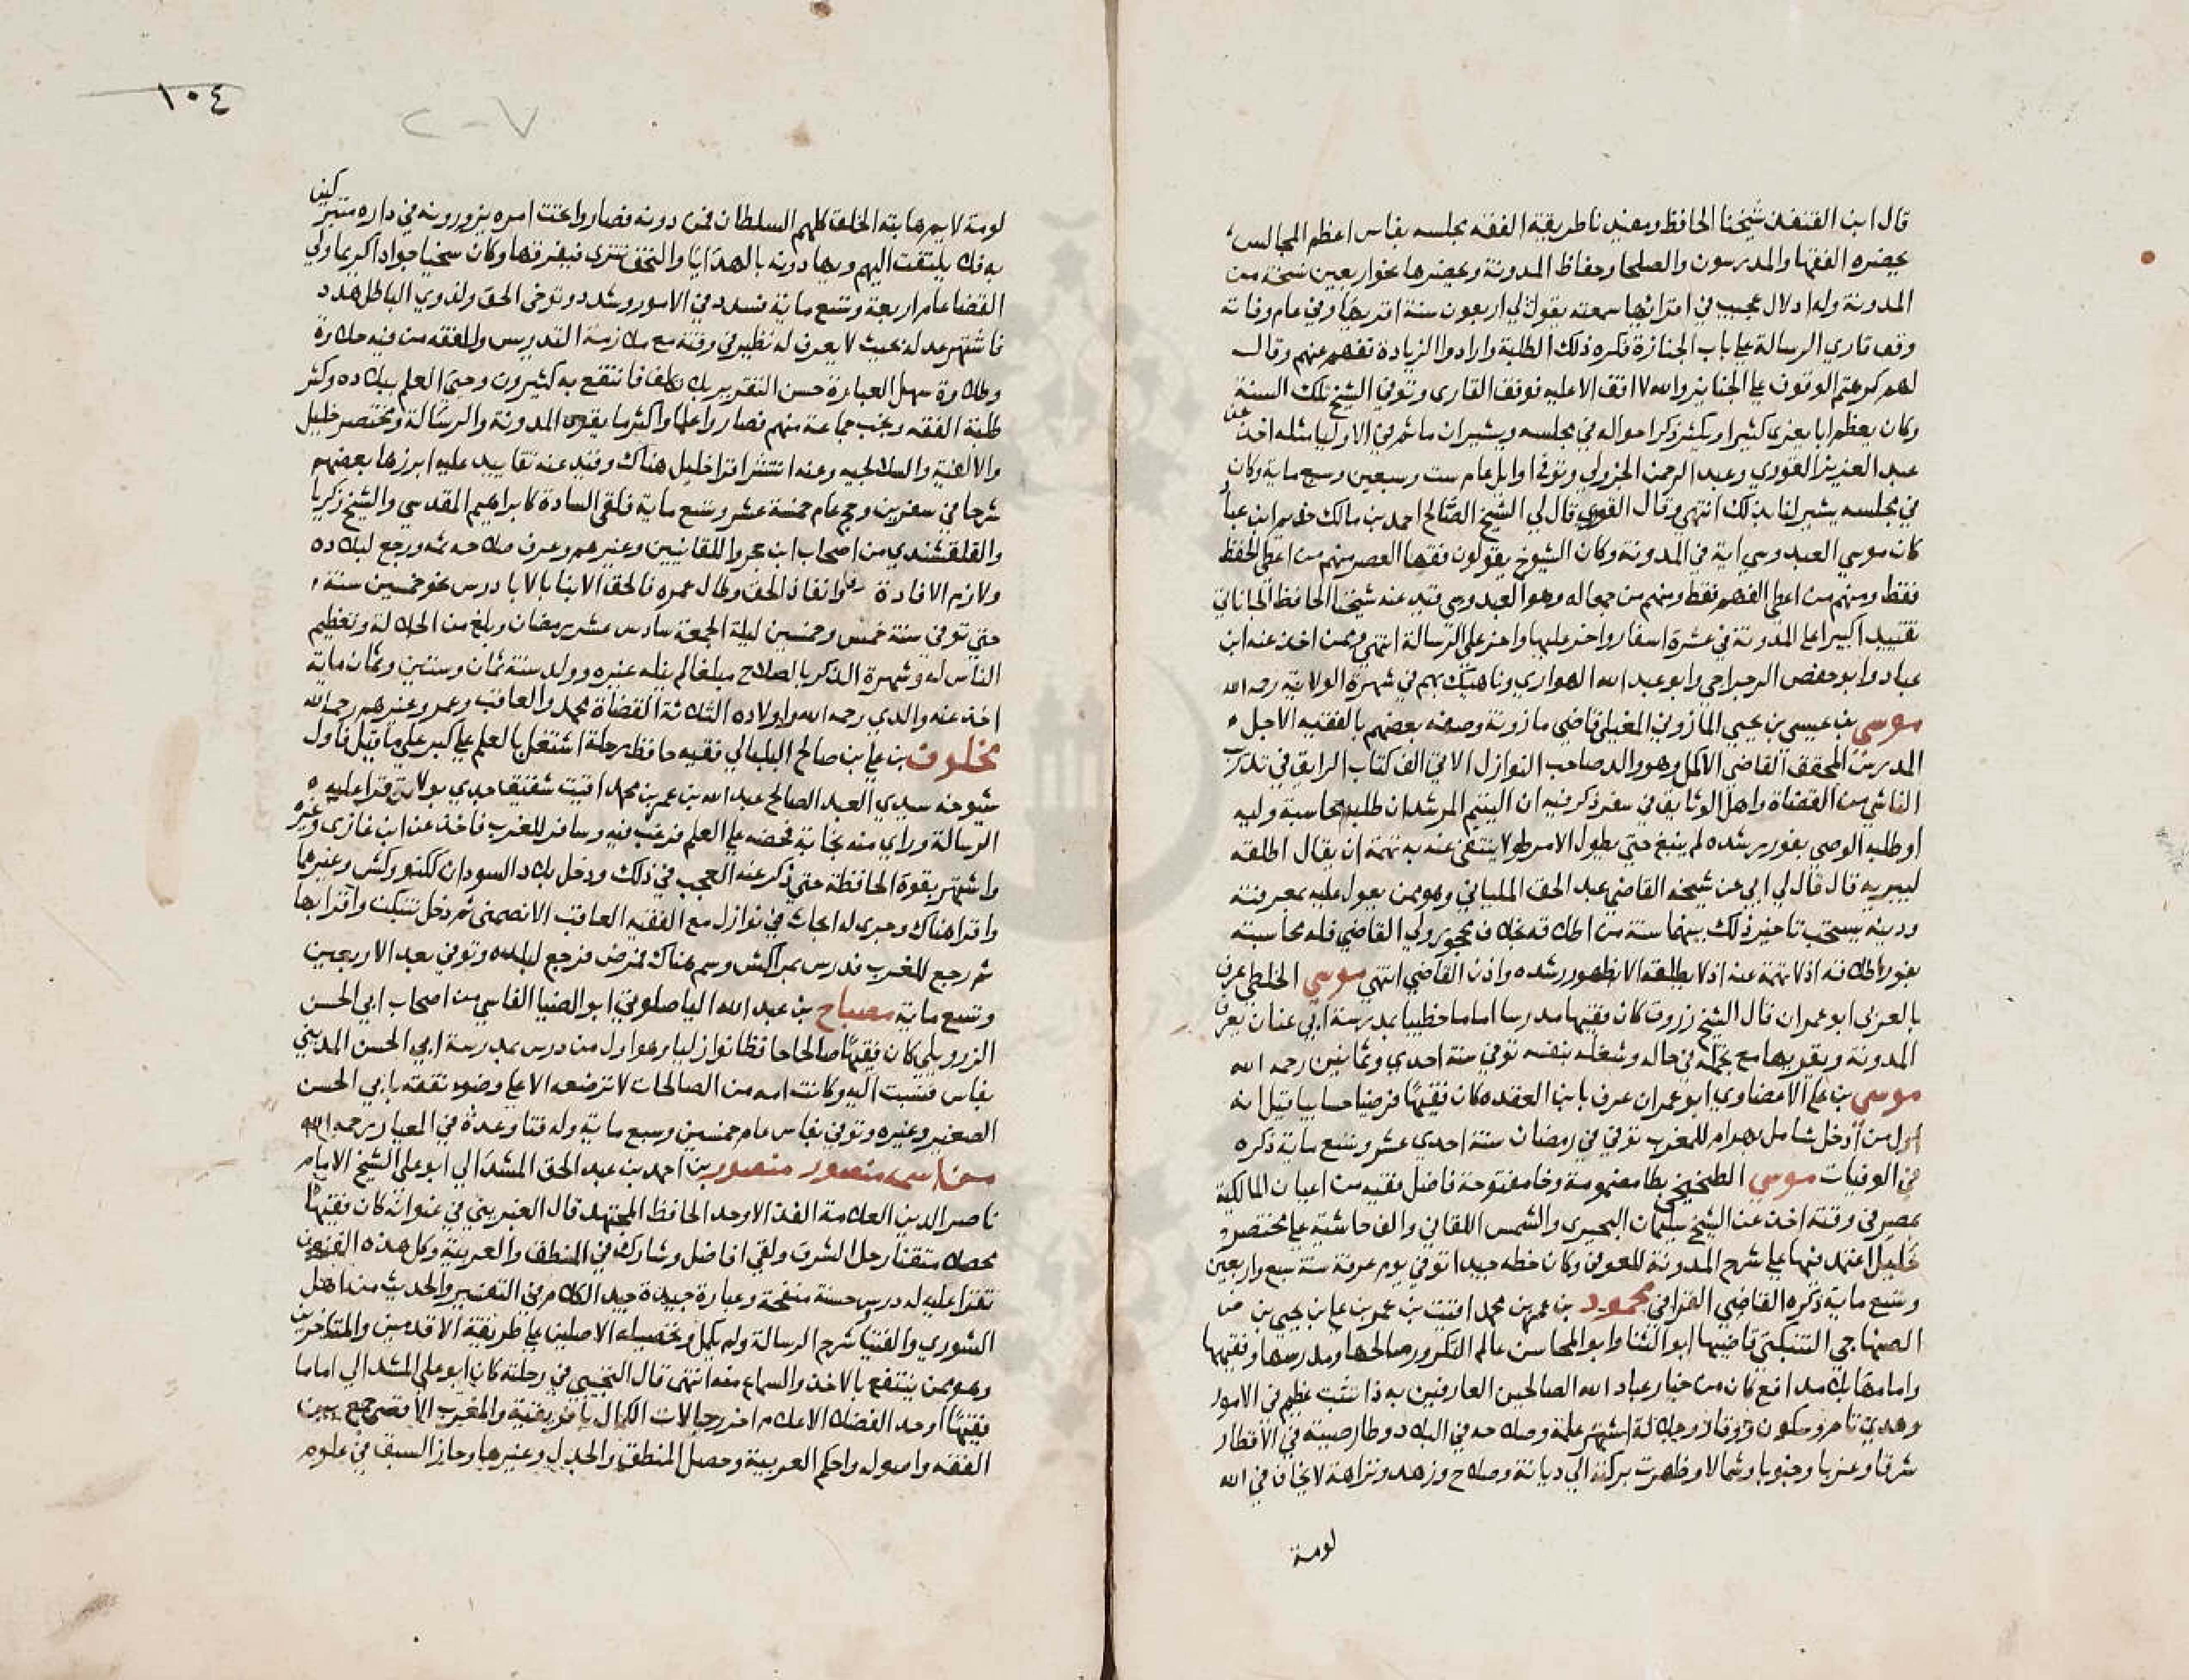 قال ابن القنفذ شيخنا الحافظ ومفيدنا طريقة الفقه مجلسه بفاس اعظم المجالس
يحضره الفقها والمدرسون والصلحا وحفاظ المدونة ويحضرها نحو اربعين نسخة من
المدونة وله ادلال عجيب في اقرائها سمعته يقول لي اربعون سنة اقريها وفي عام وفاته
وقف قاري الرسالة على باب الجنازة فكره ذلك الطلبة وارادوا الزيادة ففهم عنهم وقال
لهم كرهتم الوقوف على الجنايز والله لا اقف الا عليه فوقف القارى وتوفي الشيخ تلك السنة
وكان يعظم ابا يعزى كثيرا ويكثر ذكر احواله في مجلسه ويشير ان ما ثم في الاوليا مثله اخذ عن
عبد العزيز القوري وعبد الرحمن الجزولي وتوفي اوايل عام ست وسبعين وسبع ماية وكان
في مجلسه يشير لنا بذلك انتهى وقال القوري قال لي الشيخ الصالح احمد بن مالك خديم ابن عباد
كان موسي العبدوسي اية في المدونة وكان الشيوخ يقولون فقها العصر منهم من اعطي الحفظ
فقط ومنهم من اعطي الفهم فقط ومنهم من جمعا له وهو العبدوسي قيد عنه شيخنا الحافظ الجاناتي
تقييدا كبيرا على المدونة في عشرة اسفار واخر عليها واخر على الرسالة انتهى وممن اخذ عنه ابن
عباد وابو حفص الرجراجي وابو عبد الله الهواري وناهيك بهم في شهرة الولاية رحمه الله
موسي بن عيسي بن يحيي المازوني المغيلي قاضي مازونة وصفه بعضهم بالفقيه الاجل
المدرس المحقق القاضي الاكمل وهو والد صاحب النوازل الاتي الف كتاب الرايق في تدريب
الناشي من القضاة واهل الوثايق في سفر ذكر فيه ان اليتيم المرشد ان طلبه محاسبة وليه
او طلبه الوصي بفور رشده لم ينبغ حتي يطول الامر طولا ينتفى عنه به تهمة ان يقال اطلقه
ليبريه قال قال لي ابي عن شيخه القاضي عبد الحق الملياني وهو ممن يعول عليه بمعرفته
ودينه يستحب تاخير ذلك بينهما سنة من اطلاقه بخلاف محجور ولي القاضي فله محاسبته
بفور اطلاقه اذ لا تهمة عنه اذ لا يطلقه الا بظهور رشده واذن القاضي انتهي موسي الخلطي عرف
بالعزبى ابو عمران قال الشيخ زروق كان فقيها مدرسا اماما خطيبا بمدرسة ابي عنان يعرف
المدونة ويقريها مع تجمله في حاله وشغله بنفسه توفي سنة احدي وثمانين رحمه الله
موسي بن علي الاغصاوي ابو عمران عرف بابن العقده كان فقيها فرضيا حسابيا قيل انه
اول من ادخل شامل بهرام للمغرب توفي في رمضان سنة احدي عشر وتسع ماية ذكره
في الوفيات موسي الطخيخي بطا مضمومة وخا مفتوحة فاضل فقيه من اعيان المالكية
بمصر في وقته اخذ عن الشيخ سليمان البحيري والشمس اللقاني والف حاشية على مختصر
خليل اعتمد فيها على شرح المدونة للعوفي وكان خطه جيدا توفي يوم عرفة سنة سبع واربعين
وتسع ماية ذكره القاضي القرافي محمود بن عمر بن محمد اقيت بن عمر بن علي بن يحيى بن
الصنهاجي التنبكتي قاضيها ابو الثنا وابو المحاسن عالم التكرور وصالحها ومدرسها وفقيهها
وامامها بلا مدافع كان من خيار عباد الله الصالحين العارفين به ذا تثبت عظيم في الامور
وهدي تام وسكون ووقار وجلالة اشتهر علمه وصلاحه في البلاد وطار صيته في الاقطار
شرقا وغربا وجنوبا وشمالا وظهرت بركته الي ديانة وصلاح وزهد ونزاهة لا يخاف في الله
لومة
١٠٤
٢٠٧
لومة لايم هابته الخلق كلهم السلطان فمن دونه فصاروا تحت امره يزورونه في داره متبركين
به فلا يلتفت اليهم ويهادونه بالهدايا والتحف تترى فيفرقها وكان سخيا جوادا كريما ولي
القضا عام اربعة وتسع ماية فسدد في الامور وشدد وتوخى الحق ولذوي الباطل هدد
فاشتهر عدله بحيث لا يعرف له نظير في وقته مع ملازمة التدريس وللفقه من فيه حلاوة
وطلاوة سهل العبارة حسن التقرير بلا تكلف فانتفع به كثيرون وحيي العلم ببلاده وكثر
طلبة الفقه ونجب جماعة منهم فصاروا علما واكثر ما يقري المدونة والرسالة ومختصر خليل
والالفية والسلالجية وعنه انتشر اقرا خليل هناك وقيد عنه تقاييد عليه ابرزها بعضهم
شرحا في سفرين وحج عام خمسة عشر وتسع ماية فلقي السادة كابراهيم المقدسي والشيخ زكريا
والقلقشندي من اصحاب ابن حجر واللقانيين وغيرهم وعرف صلاحه ثمه ورجع لبلاده
ولازم الافادة وانفاذ الحق وطال عمره فالحق الابنا بالابا درس نحو خمسين سنة
حتي توفي سنة خمس وخمسين ليلة الجمعة سادس عشر رمضان وبلغ من الجلالة وتعظيم
الناس له وشهرة الذكر بالصلاح مبلغا لم ينله غيره وولد سنة ثمان وستين وثمان ماية
اخذ عنه والدي رحمه الله واولاده الثلاثة القضاة محمد والعاقب وعمر وغيرهم رحمه الله
مخلوف بن علي بن صالح البلبالي فقيه حافظ رحلة اشتغل بالعلم على كبر علي ما قيل فاول
شيوخه سيدي العبد الصالح عبد الله بن عمر بن محمد اقيت شقيق جدي بولاتة قرا عليه
الرسالة وراي منه نجابة فحضه على العلم فرغب فيه وسافر للغرب فاخذ عن ابن غازى وغيره
واشتهر بقوة الحافظة حتي ذكر عنه العجب في ذلك ودخل بلاد السودان ككنو وكشن وغيرهما
واقرا هناك وجرى له ابحاث في نوازل مع الفقيه العاقب الانصمني ثم دخل تنبكت واقرا بها
ثم رجع للغرب فدرس بمراكش وسم هناك فمرض فرجع لبلده وتوفي بعد الاربعين
وتسع ماية مصباح بن عبد الله الياصلوتي ابو الضيا الفاسي من اصحاب ابي الحسن
الزرويلي كان فقيها صالحا حافظا نوازليا وهو اول من درس بمدرسة ابي الحسن المديني
بفاس فنسبت اليه وكانت امه من الصالحات لا ترضعه الا على وضوء تفقه بابي الحسن
الصغير وغيره وتوفي بفاس عام خمسين وسبع ماية وله فتاو عدة في المعيار رحمه الله
من اسمه منصور منصور بن احمد بن عبد الحق المشدالي ابو علي الشيخ الامام
ناصر الدين العلامة الفذ الاوحد الحافظ المجتهد قال الغبريني في عنوانه كان فقيها
محصلا متقنا رحل الشرق ولقي افاضل وشارك في المنطق والعربية وكل هذه الفنون
تقرا عليه له درس حسنة منقحة وعبارة جيدة جيد الكلام في التفسير والحديث من اهل
الشورى والفتيا شرح الرسالة ولم يكمل وتحصيله الاصلين على طريقة الاقدمين والمتاخرين
وهو ممن ينتفع بالاخذ والسماع منه انتهى قال التجيبي في رحلته كان ابو علي المشدالي اماما
فقيها اوحد الفضلا الاعلام اخر رجالات الكمال بافريقية والمغرب الاقصى جمع بين
الفقه واصوله واحكم العربية وحصل المنطق والجدل وغيرها وحاز السبق في علوم